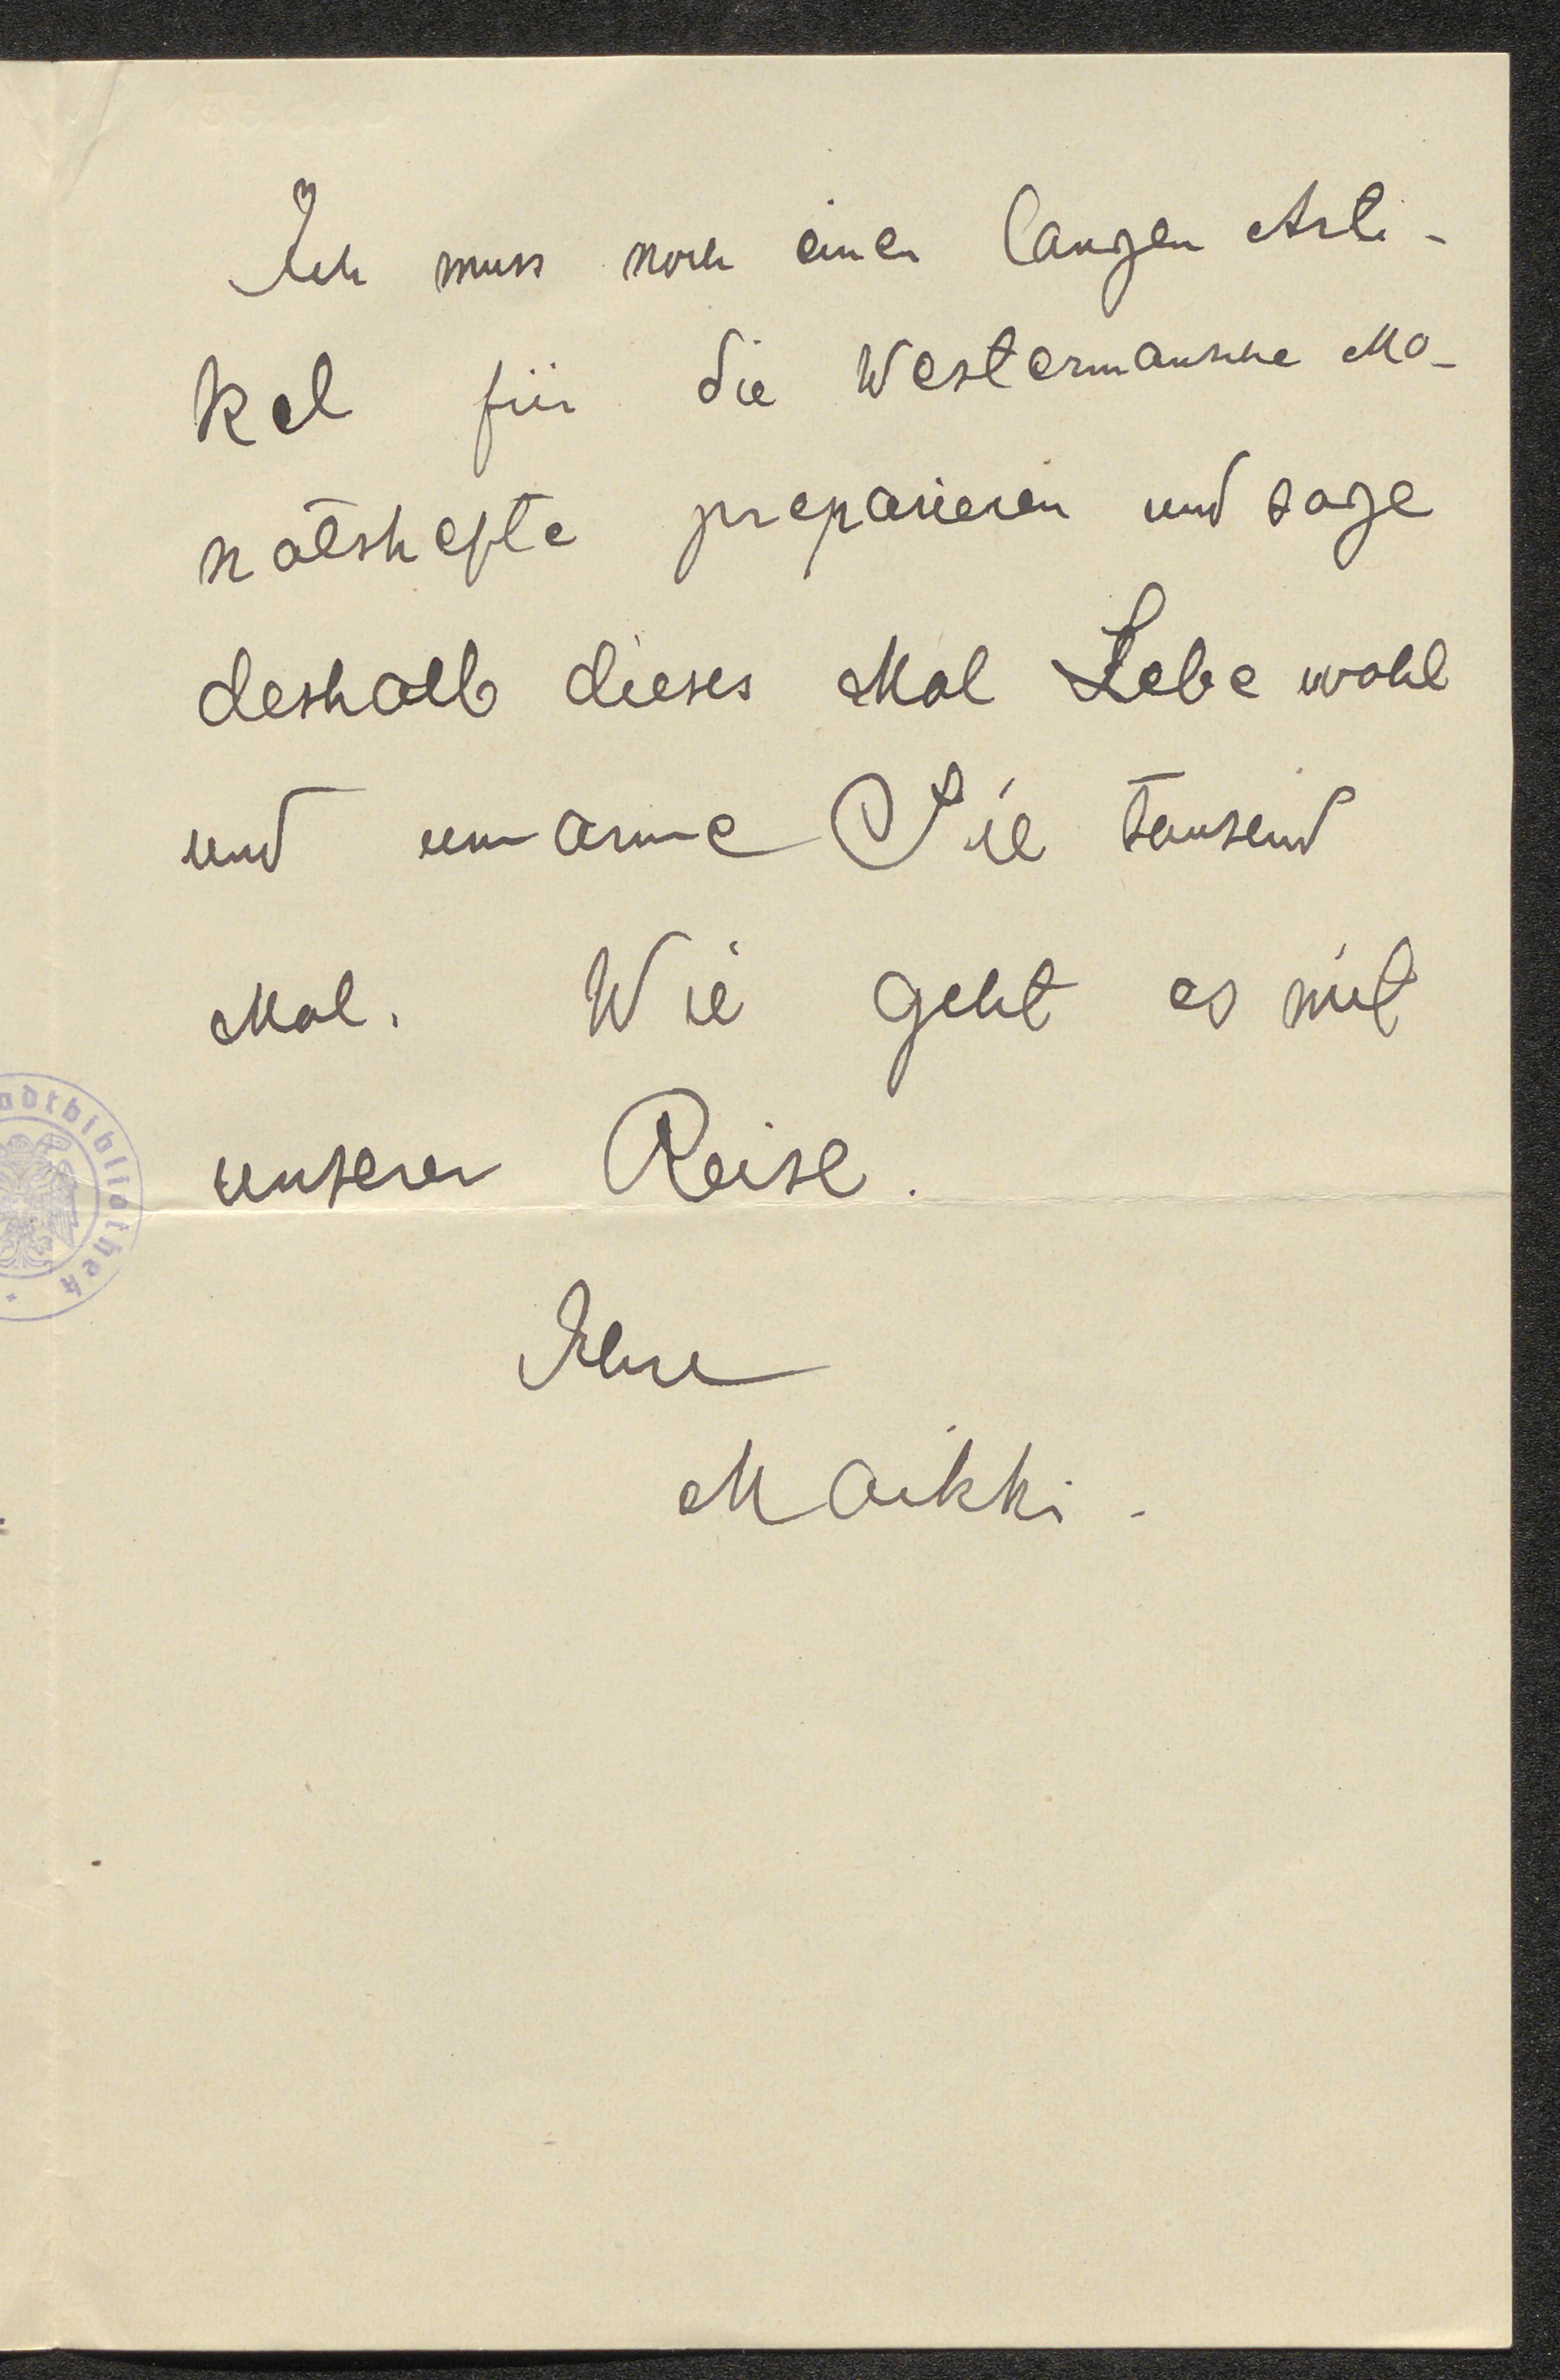 Ich muss noch einen langen Arti-
kel für die Westermansche Mo-
natshefte preparieren und sage
deshalb dieses Mal Lebe wohl
und umarme Sie tausend
Mal. Wie geht es mit
unserer Reise.
adtbibliothek
Ihre
Maikki.